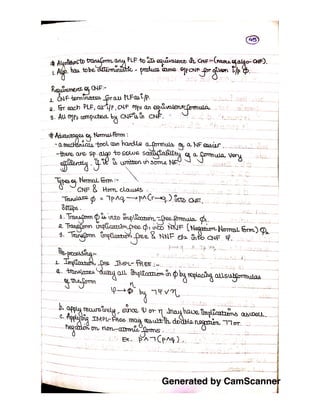 45
* Algorithm to transform any PLF to its equivalence in CNF - (name of algo- CNF).
1. Algo. has to be deterministic - produce same o/p CNF for given i/p φ.
Requirement of CNF:-
1. CNF terminates for all PLF as i/p.
2. For each PLF, as i/p, CNF o/ps an equivalent formula.
3. All o/ps computed by CNF is in CNF.
* Advantages of Normal Form:
- a mechanical tool can handle a formula of a NF easier.
- there are sp. algo to solve satisfiability of a formula very
efficiently, if it is written in some NF.
Types of Normal Form:-
CNF & Horn clauses.
Translate φ = ¬p∧q → p∧(r→q) into CNF.
Steps.
1. Transform φ is into implication-free formula φ1.
2. Transform implication free φ1 into NNF (Negation Normal Form) φ2.
3. Transform implication free & NNF φ2 into CNF φ.
Pre-processing:-
1. Implication free IMPL-FREE:-
a. translates away all implication in φ by replacing all subformulas
of the form
φ→η by ¬φ∨η
b. apply recursively, since φ or η may have implications as well.
c. Applying IMPL-Free may result in double negation ¬¬ or
negation on non-atomic forms.
Ex. p∧¬(p∧q).
Generated by CamScanner